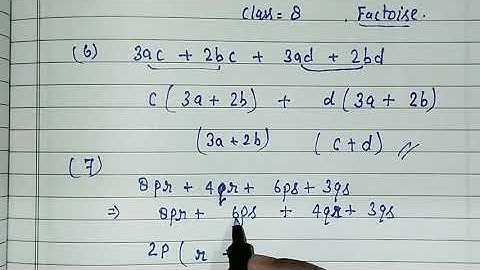 Class = 8 . Factoise.
(6) 3ac + 2bc + 3ad + 2bd
c ( 3a + 2b) + d ( 3a + 2b)
(3a + 2b) ( c + d) //
(7)
8pr + 4qr + 6ps + 3qs
⇒ 8pr + 6ps + 4qr + 3qs
2p ( r +